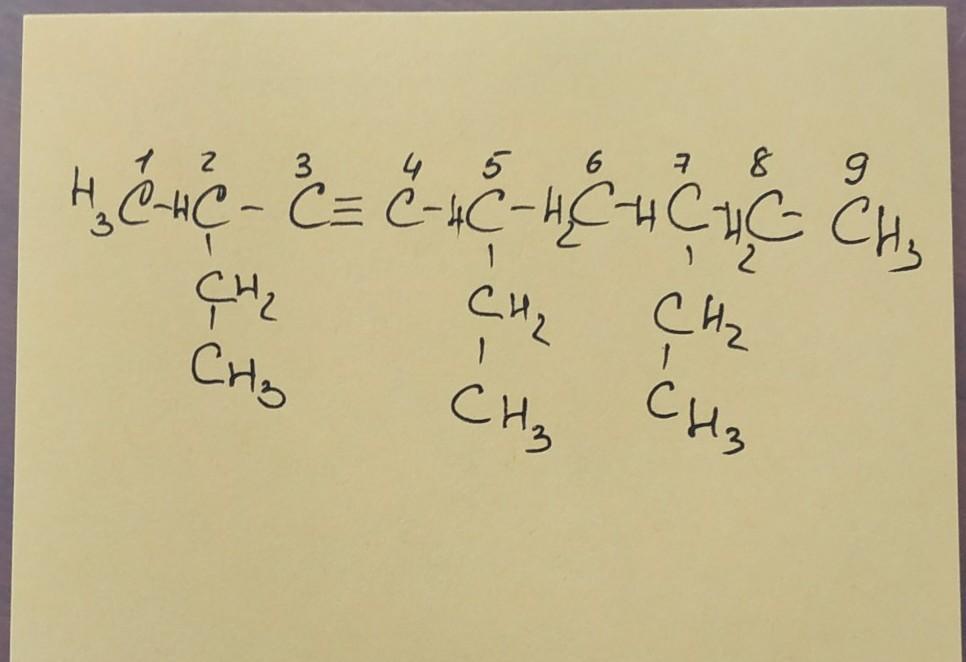 1 2 3 4 5 6 7 8 9
H₃C-HC-C≡C-HC-H₂C-HC-H₂C-CH₃
CH₂ CH₂ CH₂
CH₃ CH₃ CH₃